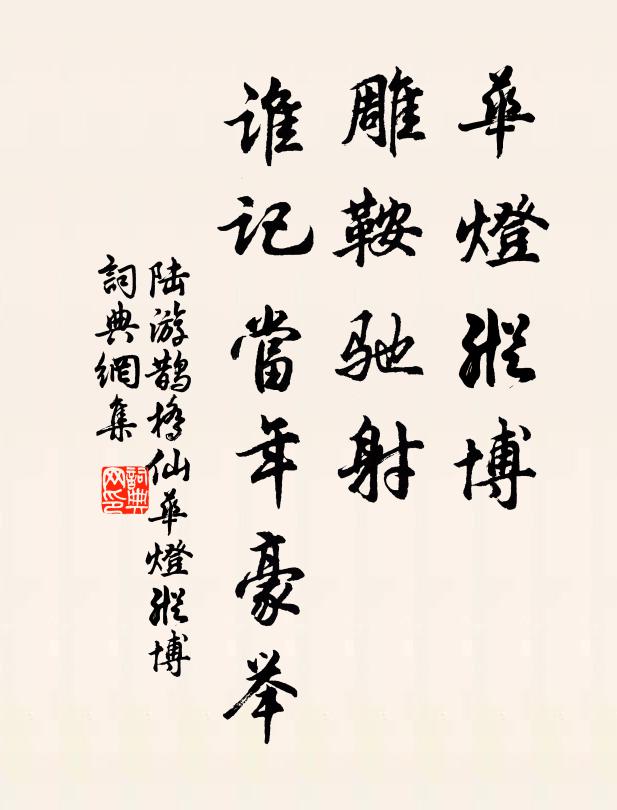 華燈縱博
雕鞍馳射
誰記當年豪举
陆游鵲橋仙華燈縱博
詞典網集
詞典网印